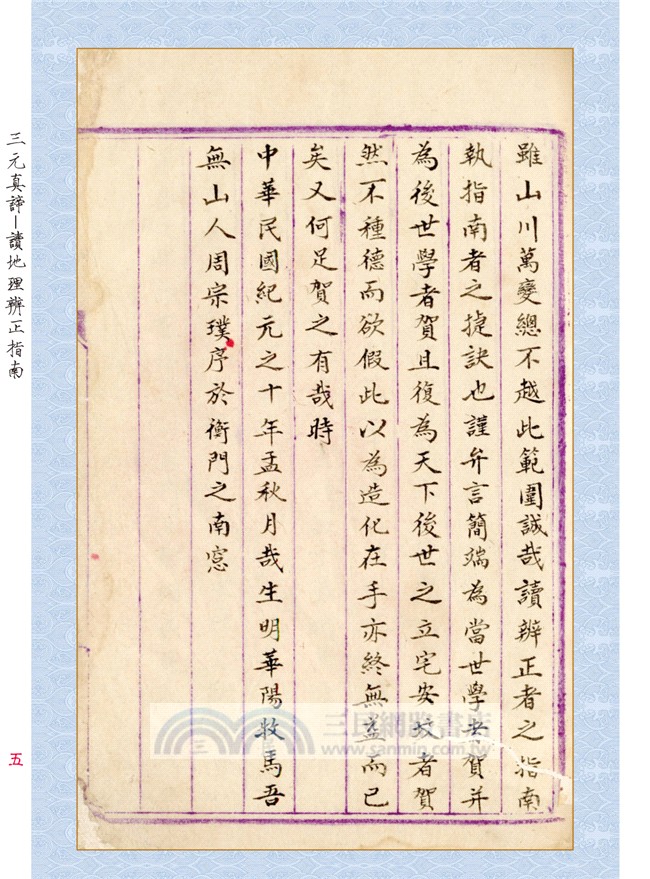 雖山川萬變總不越此範圍誠哉讀辨正者之指南
執指南者之捷訣也謹弁言簡端為當世學者賀并
為後世學者賀且復為天下後世之立宅安坟者賀
然不種德而欲假此以為造化在手亦終無益而已
矣又何足賀之有哉時
中華民國紀元之十年孟秋月哉生明華陽牧馬吾
無山人周宗璞序於衡門之南窓
三元真諦—讀地理辨正指南
五
三民網路書店
www.sanmin.com.tw